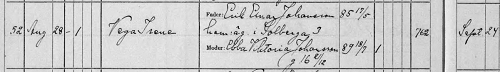 Fader: Erik Einar Johansson 85 17/5
52 Aug 28 - 1 Vega Irene hemäg. i Solberga 3 762 Sept 24
Moder: Ebba Viktoria Johansson 89 18/7 1
g 16 2/12